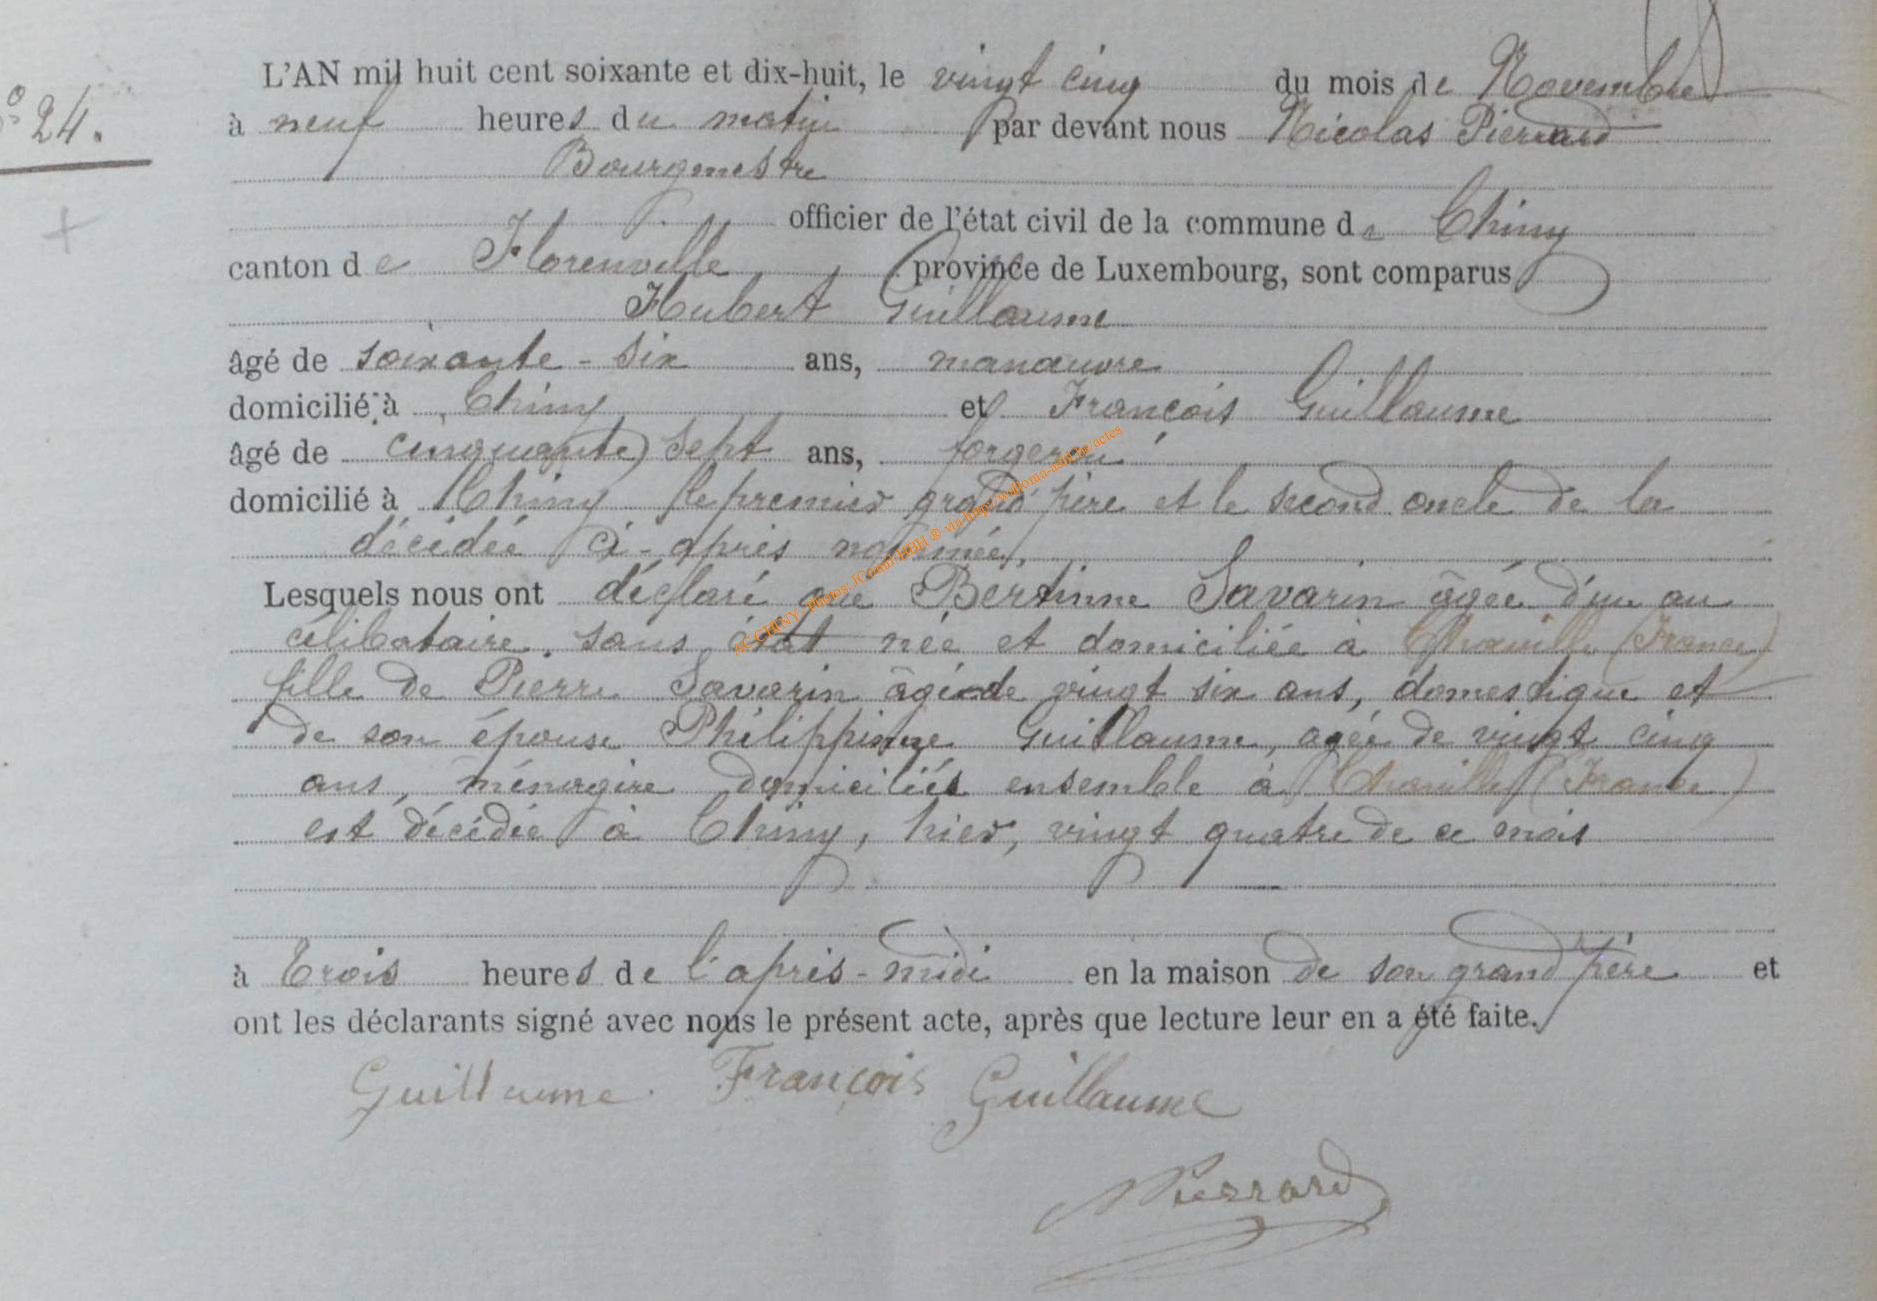 N° 24.
L'AN mil huit cent soixante et dix-huit, le vingt cinq du mois de Novembre
à neuf heures du matin par devant nous Nicolas Pierrard
Bourgmestre
officier de l'état civil de la commune de Chiny
canton de Florenville, province de Luxembourg, sont comparus
Hubert Guillaume
âgé de soixante-six ans, manœuvre
domicilié à Chiny et François Guillaume
âgé de cinquante sept ans, forgeron
domicilié à Chiny le premier grand'père et le second oncle de la
décédée ci-après nommée,
Lesquels nous ont déclaré que Bertinne Savarin âgée d'un an
célibataire, sans état née et domiciliée à Chauille (France)
fille de Pierre Savarin âgé de vingt six ans, domestique et
de son épouse Philippinne Guillaume, agée de vingt cinq
ans, ménagère domiciliés ensemble à Chauille (France)
est décédée à Chiny, hier, vingt quatre de ce mois
à trois heures de l'après-midi en la maison de son grand père et
ont les déclarants signé avec nous le présent acte, après que lecture leur en a été faite.
Guillaume. François Guillaume
NPierrard